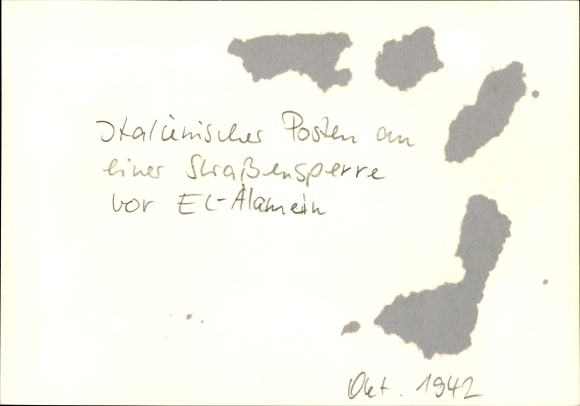 Italienischer Posten an
einer Straßensperre
vor El-Alamein
Okt. 1942